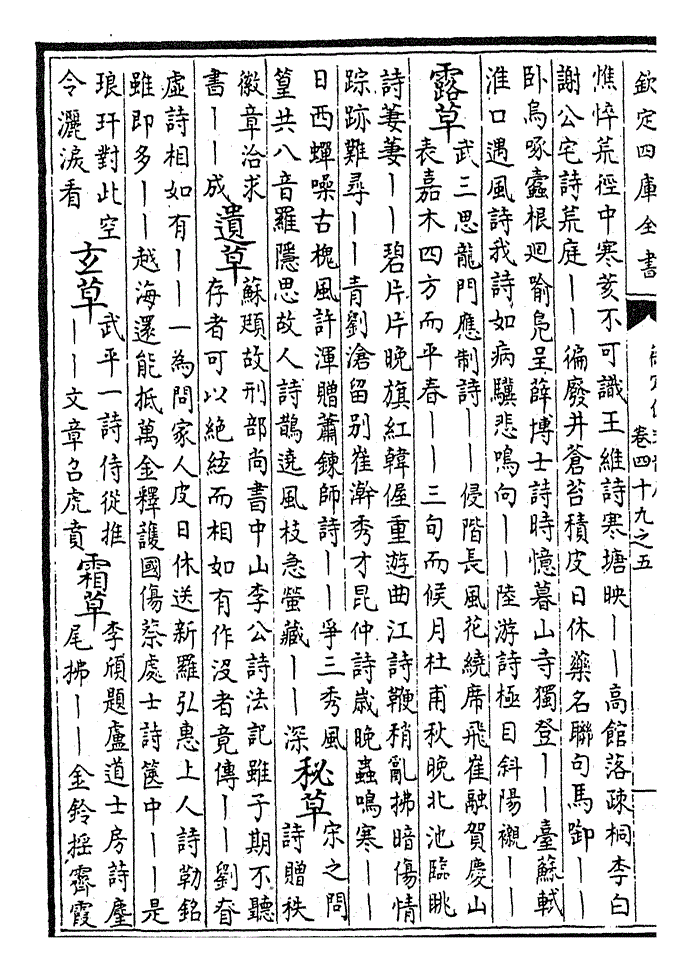 欽定四庫全書
卷四十九之五
憔悴荒徑中寒荄不可識王維詩寒塘映——高館落疎桐李白
謝公宅詩荒庭——徧廢井蒼苔積皮日休藥名聯句馬——
卧烏啄蠧根迴喻鳧呈薛博士詩時憶暮山寺獨登——臺蘇軾
淮口遇風詩我詩如病驥悲鳴向——陸游詩極目斜陽襯——
露草
武三思龍門應制詩——侵階長風花繞席飛崔融賀慶山
表嘉木四方而平春——三旬而候月杜甫秋晚北池臨眺
詩萋萋——碧片片晚旗紅韓偓重遊曲江詩鞭稍亂拂暗傷情
踪跡難尋——青劉滄留別崔澣秀才昆仲詩歲晚蟲鳴寒——
日西蟬噪古槐風許渾贈蕭鍊師詩——爭三秀風
篁共八音羅隱思故人詩鵲遶風枝急螢藏——深
秘草
宋之問
詩贈秩
徽章洽求
書——成
遺草
蘇頲故刑部尚書中山李公詩法記雖子期不聽
存者可以絶絃而相如有作没者竟傳——劉眘
虛詩相如有——一為問家人皮日休送新羅弘惠上人詩勒銘
雖即多——越海還能抵萬金釋護國傷蔡處士詩篋中——是
琅玕對此空
令灑淚看
玄草
武平一詩侍從推
——文章召虎賁
霜草
李頎題盧道士房詩麈
尾拂——金鈴揺霽霞